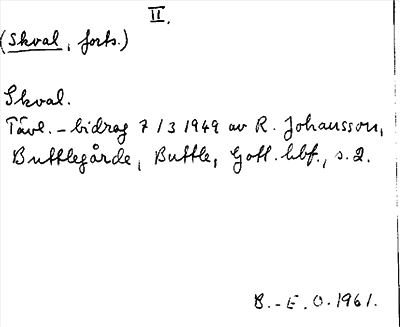 II.
(Skval, forts.)
Skval.
Tävl.-bidrag 7/3 1949 av R. Johansson,
Buttlegårde, Buttle, Gotl. hbf., s. 2.
B.-E. O. 1961.